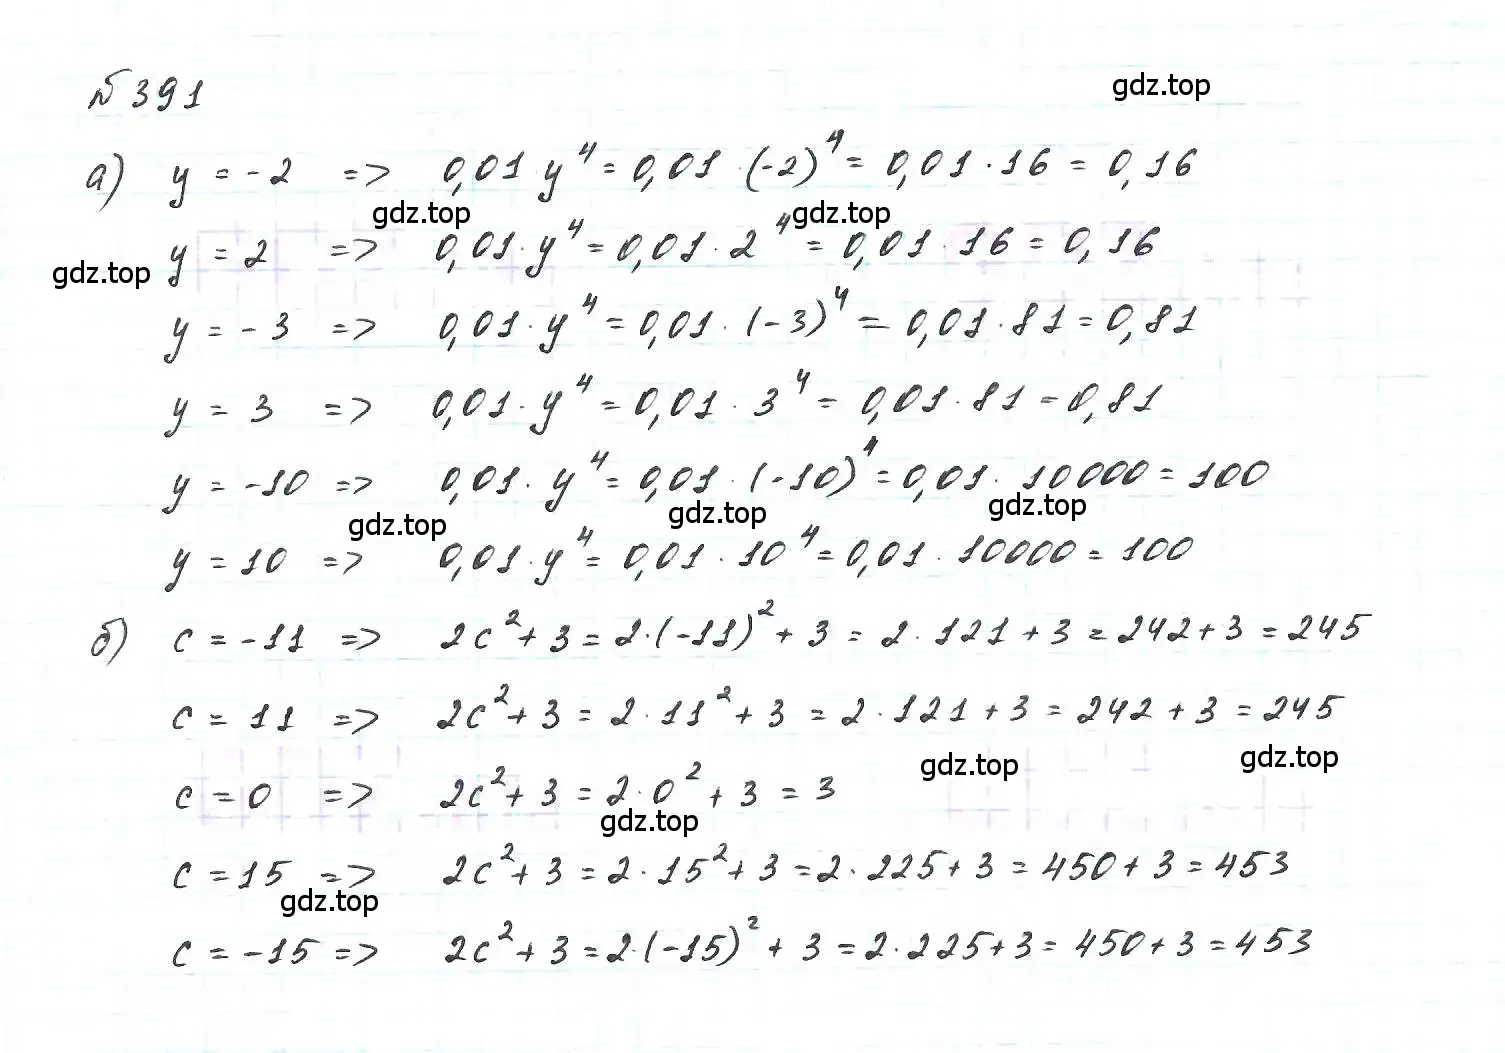 №391
gdz.top
а) y = -2 => 0,01 y⁴ = 0,01 · (-2)⁴ = 0,01 · 16 = 0,16
gdz.top gdz.top
y = 2 => 0,01 · y⁴ = 0,01 · 2⁴ = 0,01 · 16 = 0,16
gdz.top
y = -3 => 0,01 · y⁴ = 0,01 · (-3)⁴ = 0,01 · 81 = 0,81
y = 3 => 0,01 · y⁴ = 0,01 · 3⁴ = 0,01 · 81 = 0,81
y = -10 => 0,01 · y⁴ = 0,01 · (-10)⁴ = 0,01 · 10000 = 100
gdz.top gdz.top gdz.top
y = 10 => 0,01 · y⁴ = 0,01 · 10⁴ = 0,01 · 10000 = 100
б) c = -11 => 2c² + 3 = 2 · (-11)² + 3 = 2 · 121 + 3 = 242 + 3 = 245
c = 11 => 2c² + 3 = 2 · 11² + 3 = 2 · 121 + 3 = 242 + 3 = 245
gdz.top gdz.top
c = 0 => 2c² + 3 = 2 · 0² + 3 = 3
gdz.top
c = 15 => 2c² + 3 = 2 · 15² + 3 = 2 · 225 + 3 = 450 + 3 = 453
gdz.top
c = -15 => 2c² + 3 = 2 · (-15)² + 3 = 2 · 225 + 3 = 450 + 3 = 453